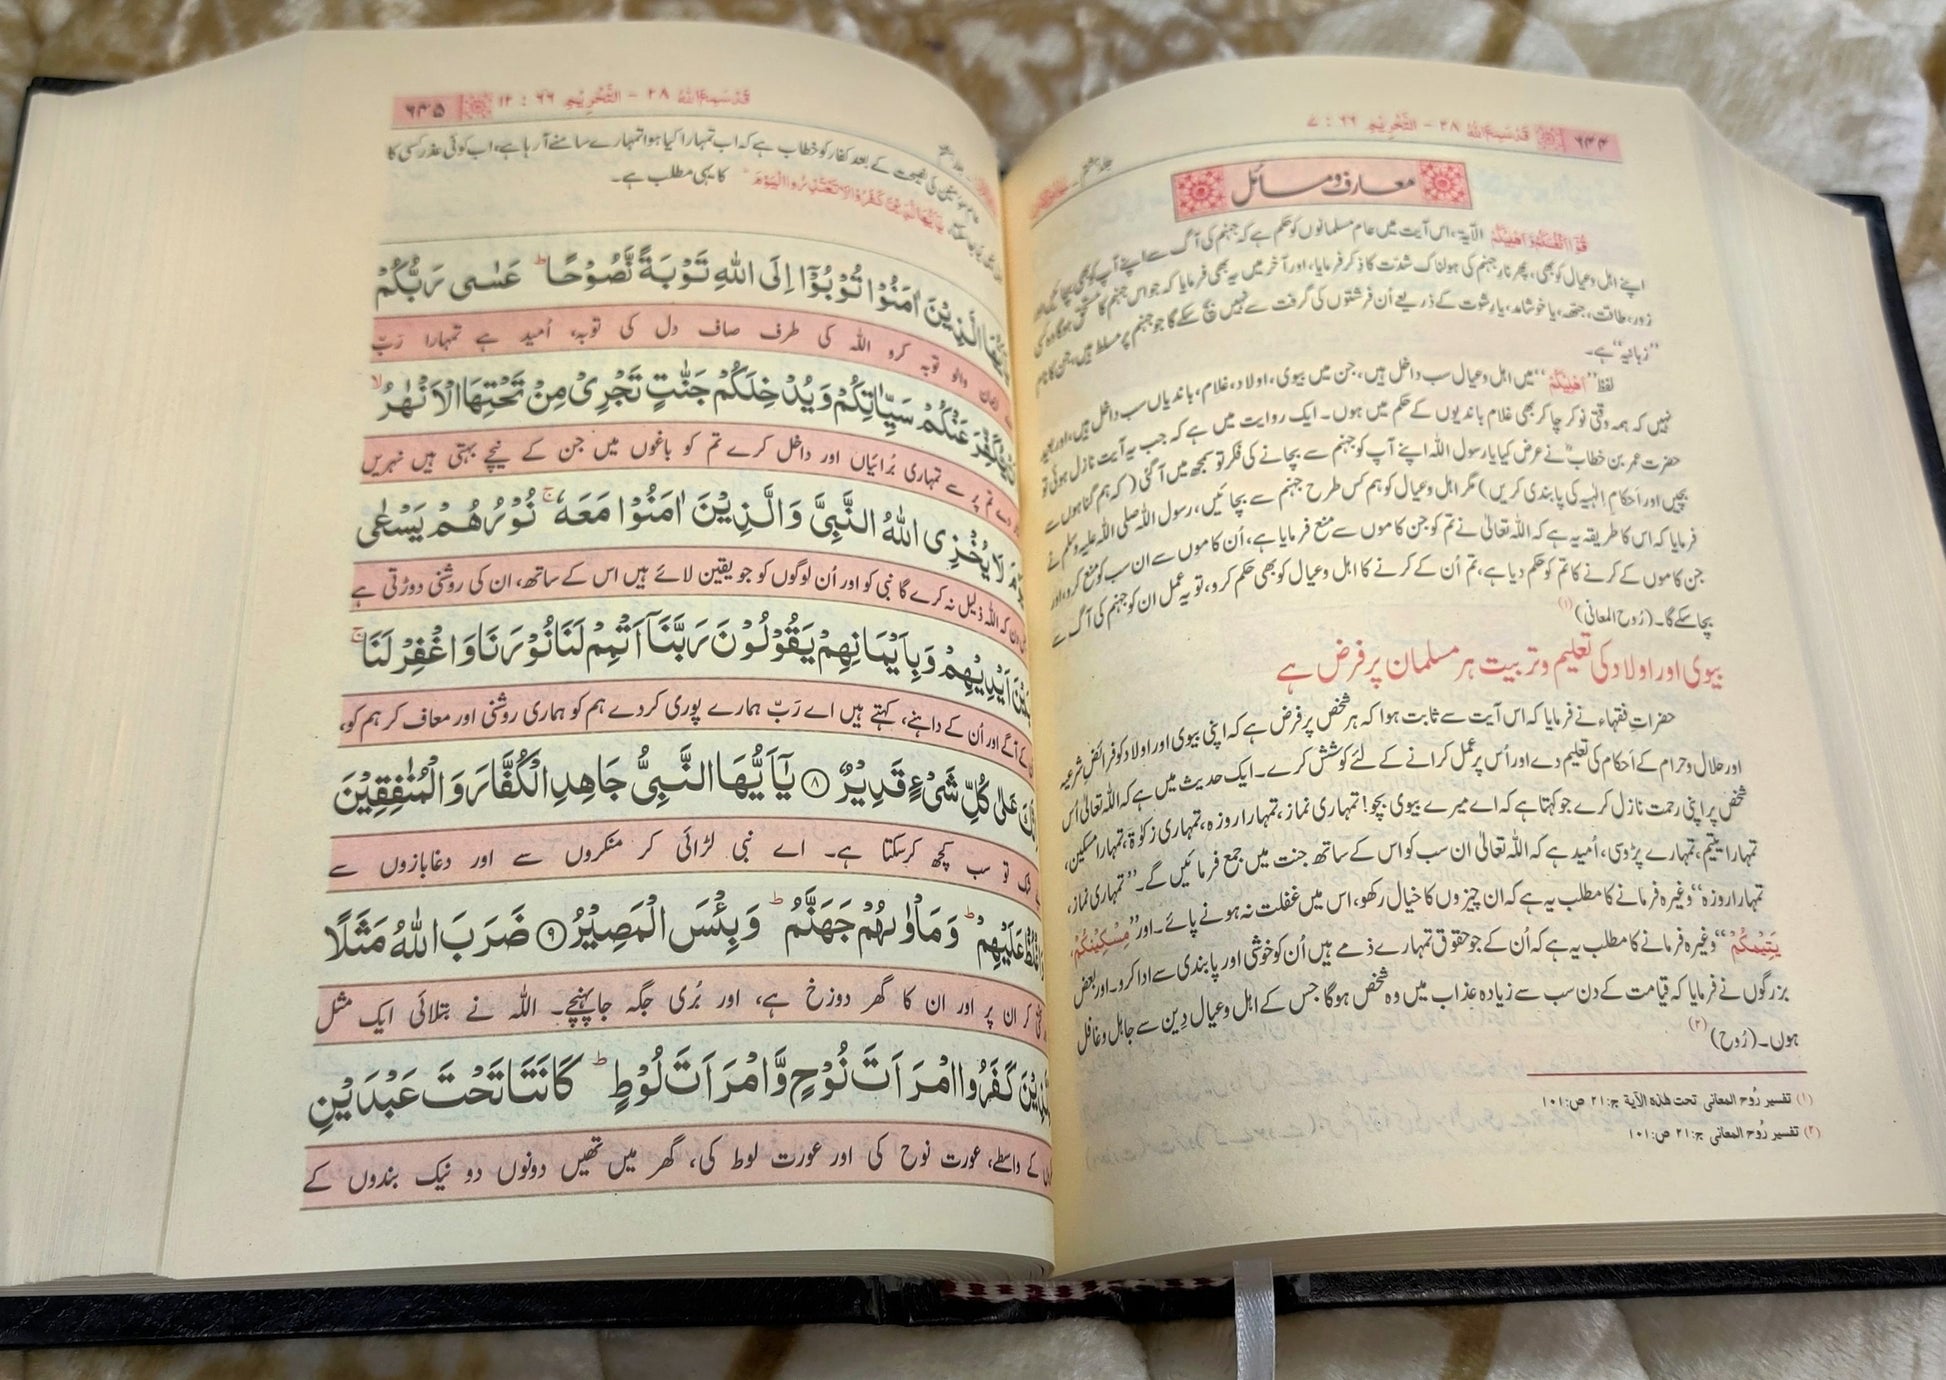 ۶۴۴ قَدْ سَمِعَ اللّٰهُ ۲۸ – التَّحْرِيْم ۶۶ : ۷
جلد ہشتم
معارف و مسائل
قُوْٓا اَنْفُسَكُمْ وَاَهْلِيْكُمْ الآیۃ، اس آیت میں عام مسلمانوں کو حکم ہے کہ جہنم کی آگ سے اپنے آپ کو بھی بچائیں اور
اپنے اہل و عیال کو بھی، پھر نارِ جہنم کی ہولناک شدّت کا ذکر فرمایا، اور آخر میں یہ بھی فرمایا کہ جو اس جہنم کا مستحق ہوگا وہ کسی
زور، طاقت، جتھہ، یا خوشامد، یا رشوت کے ذریعے اُن فرشتوں کی گرفت سے نہیں بچ سکے گا جو جہنم پر مسلط ہیں، جن کا نام
”زبانیہ“ ہے۔
لفظ ”اَهْلِيْكُمْ“ میں اہل و عیال سب داخل ہیں، جن میں بیوی، اولاد، غلام، باندیاں سب داخل ہیں، اور بعید
نہیں کہ ہمہ وقتی نوکر چاکر بھی غلام باندیوں کے حکم میں ہوں۔ ایک روایت میں ہے کہ جب یہ آیت نازل ہوئی تو
حضرت عمر بن خطابؓ نے عرض کیا یا رسول اللہ اپنے آپ کو جہنم سے بچانے کی فکر تو سمجھ میں آگئی (کہ ہم گناہوں سے
بچیں اور اَحکامِ الٰہیہ کی پابندی کریں) مگر اہل و عیال کو ہم کس طرح جہنم سے بچائیں، رسول اللہ صلی اللہ علیہ وسلم نے
فرمایا کہ اس کا طریقہ یہ ہے کہ اللہ تعالیٰ نے تم کو جن کاموں سے منع فرمایا ہے، اُن کاموں سے ان سب کو منع کرو، اور
جن کاموں کے کرنے کا تم کو حکم دیا ہے، تم اُن کے کرنے کا اہل و عیال کو بھی حکم کرو، تو یہ عمل ان کو جہنم کی آگ سے
بچا سکے گا۔ (رُوح المعانی) (۱)
بیوی اور اولاد کی تعلیم و تربیت ہر مسلمان پر فرض ہے
حضراتِ فقہاء نے فرمایا کہ اس آیت سے ثابت ہوا کہ ہر شخص پر فرض ہے کہ اپنی بیوی اور اولاد کو فرائضِ شرعیہ
اور حلال و حرام کے اَحکام کی تعلیم دے اور اُس پر عمل کرانے کے لئے کوشش کرے۔ ایک حدیث میں ہے کہ اللہ تعالیٰ اُس
شخص پر اپنی رحمت نازل کرے جو کہتا ہے کہ اے میرے بیوی بچو! تمہاری نماز، تمہارا روزہ، تمہاری زکوٰۃ، تمہارا مسکین،
تمہارا یتیم، تمہارے پڑوسی، اُمید ہے کہ اللہ تعالیٰ ان سب کو اس کے ساتھ جنت میں جمع فرمائیں گے۔ ”تمہاری نماز،
تمہارا روزہ“ وغیرہ فرمانے کا مطلب یہ ہے کہ ان چیزوں کا خیال رکھو، اس میں غفلت نہ ہونے پائے۔ اور ”مِسْكِيْنُكُمْ
يَتِيْمُكُمْ“ وغیرہ فرمانے کا مطلب یہ ہے کہ اُن کے جو حقوق تمہارے ذمے ہیں اُن کو خوشی اور پابندی سے ادا کرو۔ اور بعض
بزرگوں نے فرمایا کہ قیامت کے دن سب سے زیادہ عذاب میں وہ شخص ہوگا جس کے اہل و عیال دِین سے جاہل و غافل
ہوں۔ (رُوح) (۲)
(۱) تفسیر رُوح المعانی تحت هٰذه الآية ج:۲۱ ص:۱۰۱
(۲) تفسیر رُوح المعانی ج:۲۱ ص:۱۰۱
۶۴۵ قَدْ سَمِعَ اللّٰهُ ۲۸ – التَّحْرِيْم ۶۶ : ۱۲
کی نصیحت کے بعد کفار کو خطاب ہے کہ اب تمہارا کیا ہوا تمہارے سامنے آ رہا ہے، اب کوئی عذر کسی کا
يٰٓاَيُّهَا الَّذِيْنَ كَفَرُوْا لَا تَعْتَذِرُوا الْيَوْمَ کا یہی مطلب ہے۔
الَّذِيْنَ اٰمَنُوْا تُوْبُوْٓا اِلَى اللّٰهِ تَوْبَةً نَّصُوْحًا ؕ عَسٰى رَبُّكُمْ
والو توبہ کرو اللہ کی طرف صاف دل کی توبہ، اُمید ہے تمہارا رَبّ
يُّكَفِّرَ عَنْكُمْ سَيِّاٰتِكُمْ وَيُدْخِلَكُمْ جَنّٰتٍ تَجْرِيْ مِنْ تَحْتِهَا الْاَنْهٰرُ ۙ
دے تم پر سے تمہاری بُرائیاں اور داخل کرے تم کو باغوں میں جن کے نیچے بہتی ہیں نہریں
لَا يُخْزِى اللّٰهُ النَّبِيَّ وَالَّذِيْنَ اٰمَنُوْا مَعَهٗ ۚ نُوْرُهُمْ يَسْعٰى
کہ اللہ ذلیل نہ کرے گا نبی کو اور اُن لوگوں کو جو یقین لائے ہیں اس کے ساتھ، ان کی روشنی دوڑتی ہے
بَيْنَ اَيْدِيْهِمْ وَبِاَيْمَانِهِمْ يَقُوْلُوْنَ رَبَّنَآ اَتْمِمْ لَنَا نُوْرَنَا وَاغْفِرْ لَنَا ۚ
کے آگے اور اُن کے داہنے، کہتے ہیں اے رَبّ ہمارے پوری کردے ہم کو ہماری روشنی اور معاف کر ہم کو،
عَلٰى كُلِّ شَيْءٍ قَدِيْرٌ ۝۸ يٰٓاَيُّهَا النَّبِيُّ جَاهِدِ الْكُفَّارَ وَالْمُنٰفِقِيْنَ
تو سب کچھ کرسکتا ہے۔ اے نبی لڑائی کر منکروں سے اور دغابازوں سے
عَلَيْهِمْ ؕ وَمَاْوٰىهُمْ جَهَنَّمُ ؕ وَبِئْسَ الْمَصِيْرُ ۝۹ ضَرَبَ اللّٰهُ مَثَلًا
کر ان پر اور ان کا گھر دوزخ ہے، اور بُری جگہ جا پہنچے۔ اللہ نے بتلائی ایک مثل
كَفَرُوا امْرَاَتَ نُوْحٍ وَّامْرَاَتَ لُوْطٍ ؕ كَانَتَا تَحْتَ عَبْدَيْنِ
کے واسطے، عورت نوح کی اور عورت لوط کی، گھر میں تھیں دونوں دو نیک بندوں کے